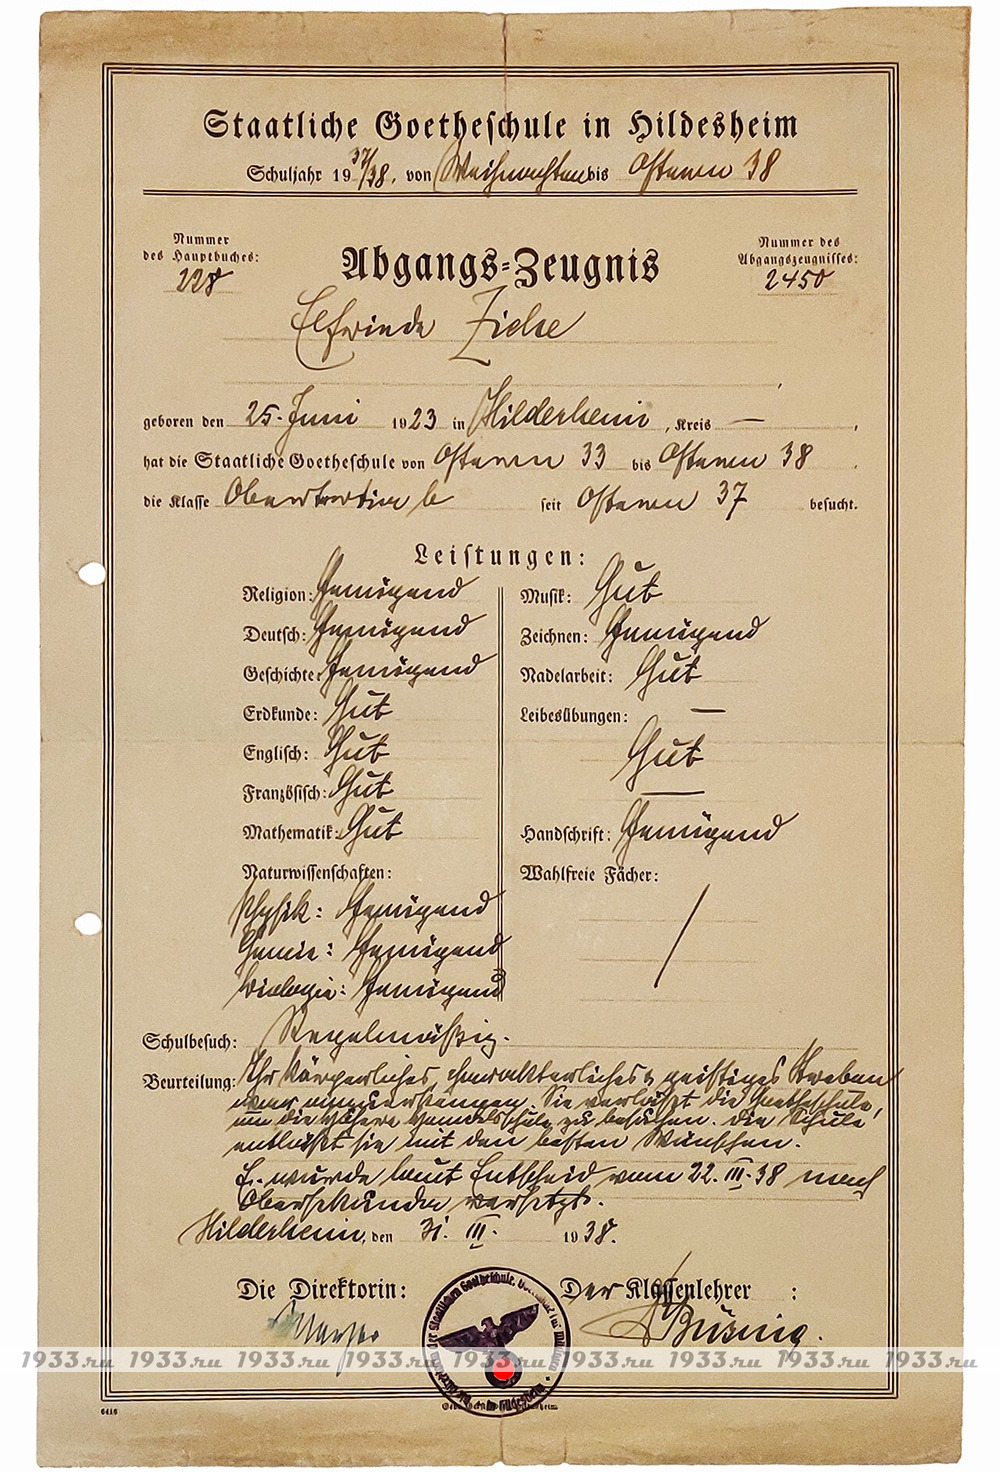 Staatliche Goetheschule in Hildesheim
Schuljahr 1937/38, von Weihnachten bis Ostern 38
Nummer
des Hauptbuches:
228
Abgangs=Zeugnis
Nummer des
Abgangszeugnisses:
2450
Elfriede
geboren den 25. Juni 1923 in Hildesheim, Kreis —,
hat die Staatliche Goetheschule von Ostern 33 bis Ostern 38
die Klasse Obertertia b seit Ostern 37 besucht.
Leistungen:
Religion: Genügend
Deutsch: Genügend
Geschichte: Genügend
Erdkunde: Gut
Englisch: Gut
Französisch: Gut
Mathematik: Gut
Naturwissenschaften:
Physik: Genügend
Chemie: Genügend
Biologie: Genügend
Musik: Gut
Zeichnen: Genügend
Nadelarbeit: Gut
Leibesübungen: —
Gut
—
Handschrift: Genügend
Wahlfreie Fächer:
Schulbesuch: Regelmäßig.
Beurteilung: Ihr körperliches, charakterliches & geistiges Streben
war anzuerkennen. Sie verläßt die Goetheschule,
um die Höhere Handelsschule zu besuchen. Die Schule
entläßt sie mit den besten Wünschen.
E. wurde laut Entscheid vom 22. III. 38 nach
Obersekunda versetzt.
Hildesheim, den 31. III. 1938.
Die Direktorin:
Der Klassenlehrer :
der Staatlichen Goetheschule
in Hildesheim
6416
1933.ru 1933.ru 1933.ru 1933.ru 1933.ru 1933.ru 1933.ru 1933.ru 1933.ru